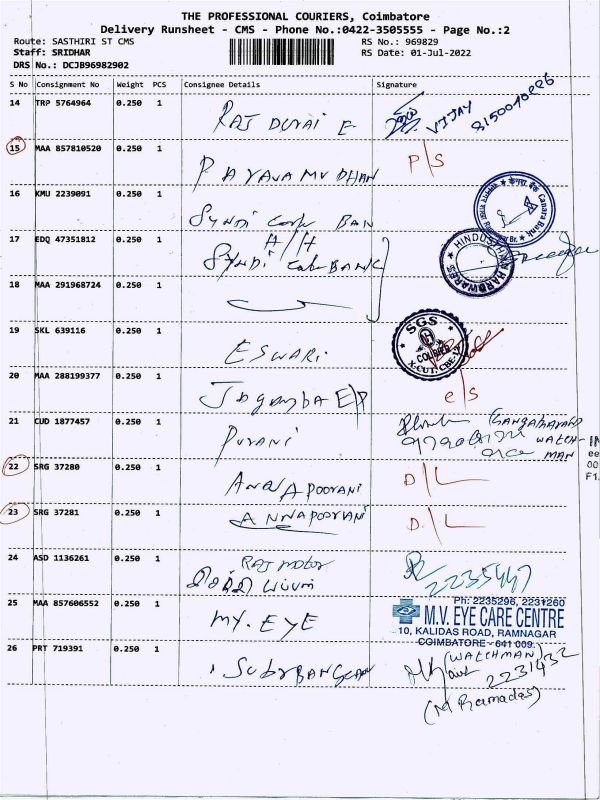 THE PROFESSIONAL COURIERS, Coimbatore
Delivery Runsheet - CMS - Phone No.:0422-3505555 - Page No.:2
Route: SASTHIRI ST CMS RS No.: 969829
Staff: SRIDHAR RS Date: 01-Jul-2022
DRS No.: DCJB96982902
S No Consignment No Weight PCS Consignee Details Signature
14 TRP 5764964 0.250 1 RAJ DURAI E VIJAY
15 MAA 857810520 0.250 1 P/S
16 KMU 2239091 0.250 1 Canara Bank
17 EDQ 47351812 0.250 1 BANK HINDUSTHAN HARDWARES
18 MAA 291968724 0.250 1
19 SKL 639116 0.250 1 ESWARI SGS COURIER X-CUT, CBE-12
20 MAA 288199377 0.250 1 e/S
21 CUD 1877457 0.250 1 PURANI WATCH- IN
MAN ee
00
F1.
22 SRG 37280 0.250 1 ANNAPOORANI D/L
23 SRG 37281 0.250 1 ANNAPOORANI D/L
24 ASD 1136261 0.250 1 RAJ motor 2235447
25 MAA 857606552 0.250 1 MY. EYE
Ph: 2235296, 2231260
M.V. EYE CARE CENTRE
10, KALIDAS ROAD, RAMNAGAR
COIMBATORE - 641 009.
26 PRT 719391 0.250 1 (WATCHMAN) 2231432
(M Ramadas)